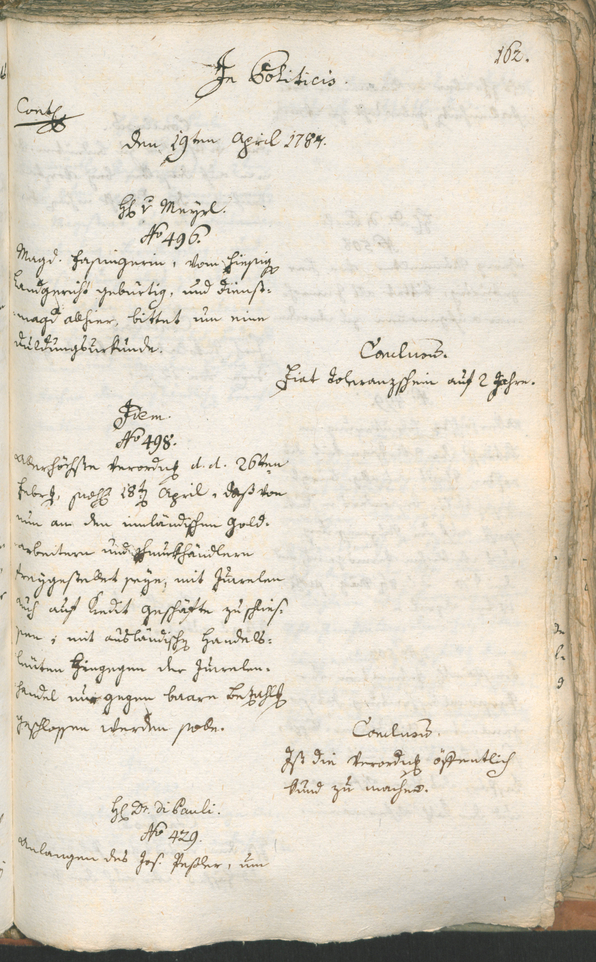 162.
In Politicis.
Cont.
den 19ten April 1784.
H. v. Meyrl.
No 496.
Magd. Hasingerin, vom hiesig
Landgericht gebürtig, und Dienst-
magd alhier, bittet um eine
duldungsurkunde.
Conclusum.
Fiat toleranzschein auf 2 Jahre.
Idem.
No 498.
allerhöchste verordng d. d. 26ten
Febr, 18 April, daß von
nun an den inländischen Gold-
arbeitern und schmukhändlern
freygestellet seye, mit Juwelen
auch auf Credit geschäfte zu schlies-
sen, mit ausländisch Handels-
leüten hingegen der Juwelen-
handel nur gegen baare bezahlg
geschlossen werden solle.
Conclusum.
Ist die verordng öffentlich
kund zu machen.
H. Dr. di Pauli.
No 429.
anlangen des Jos. um